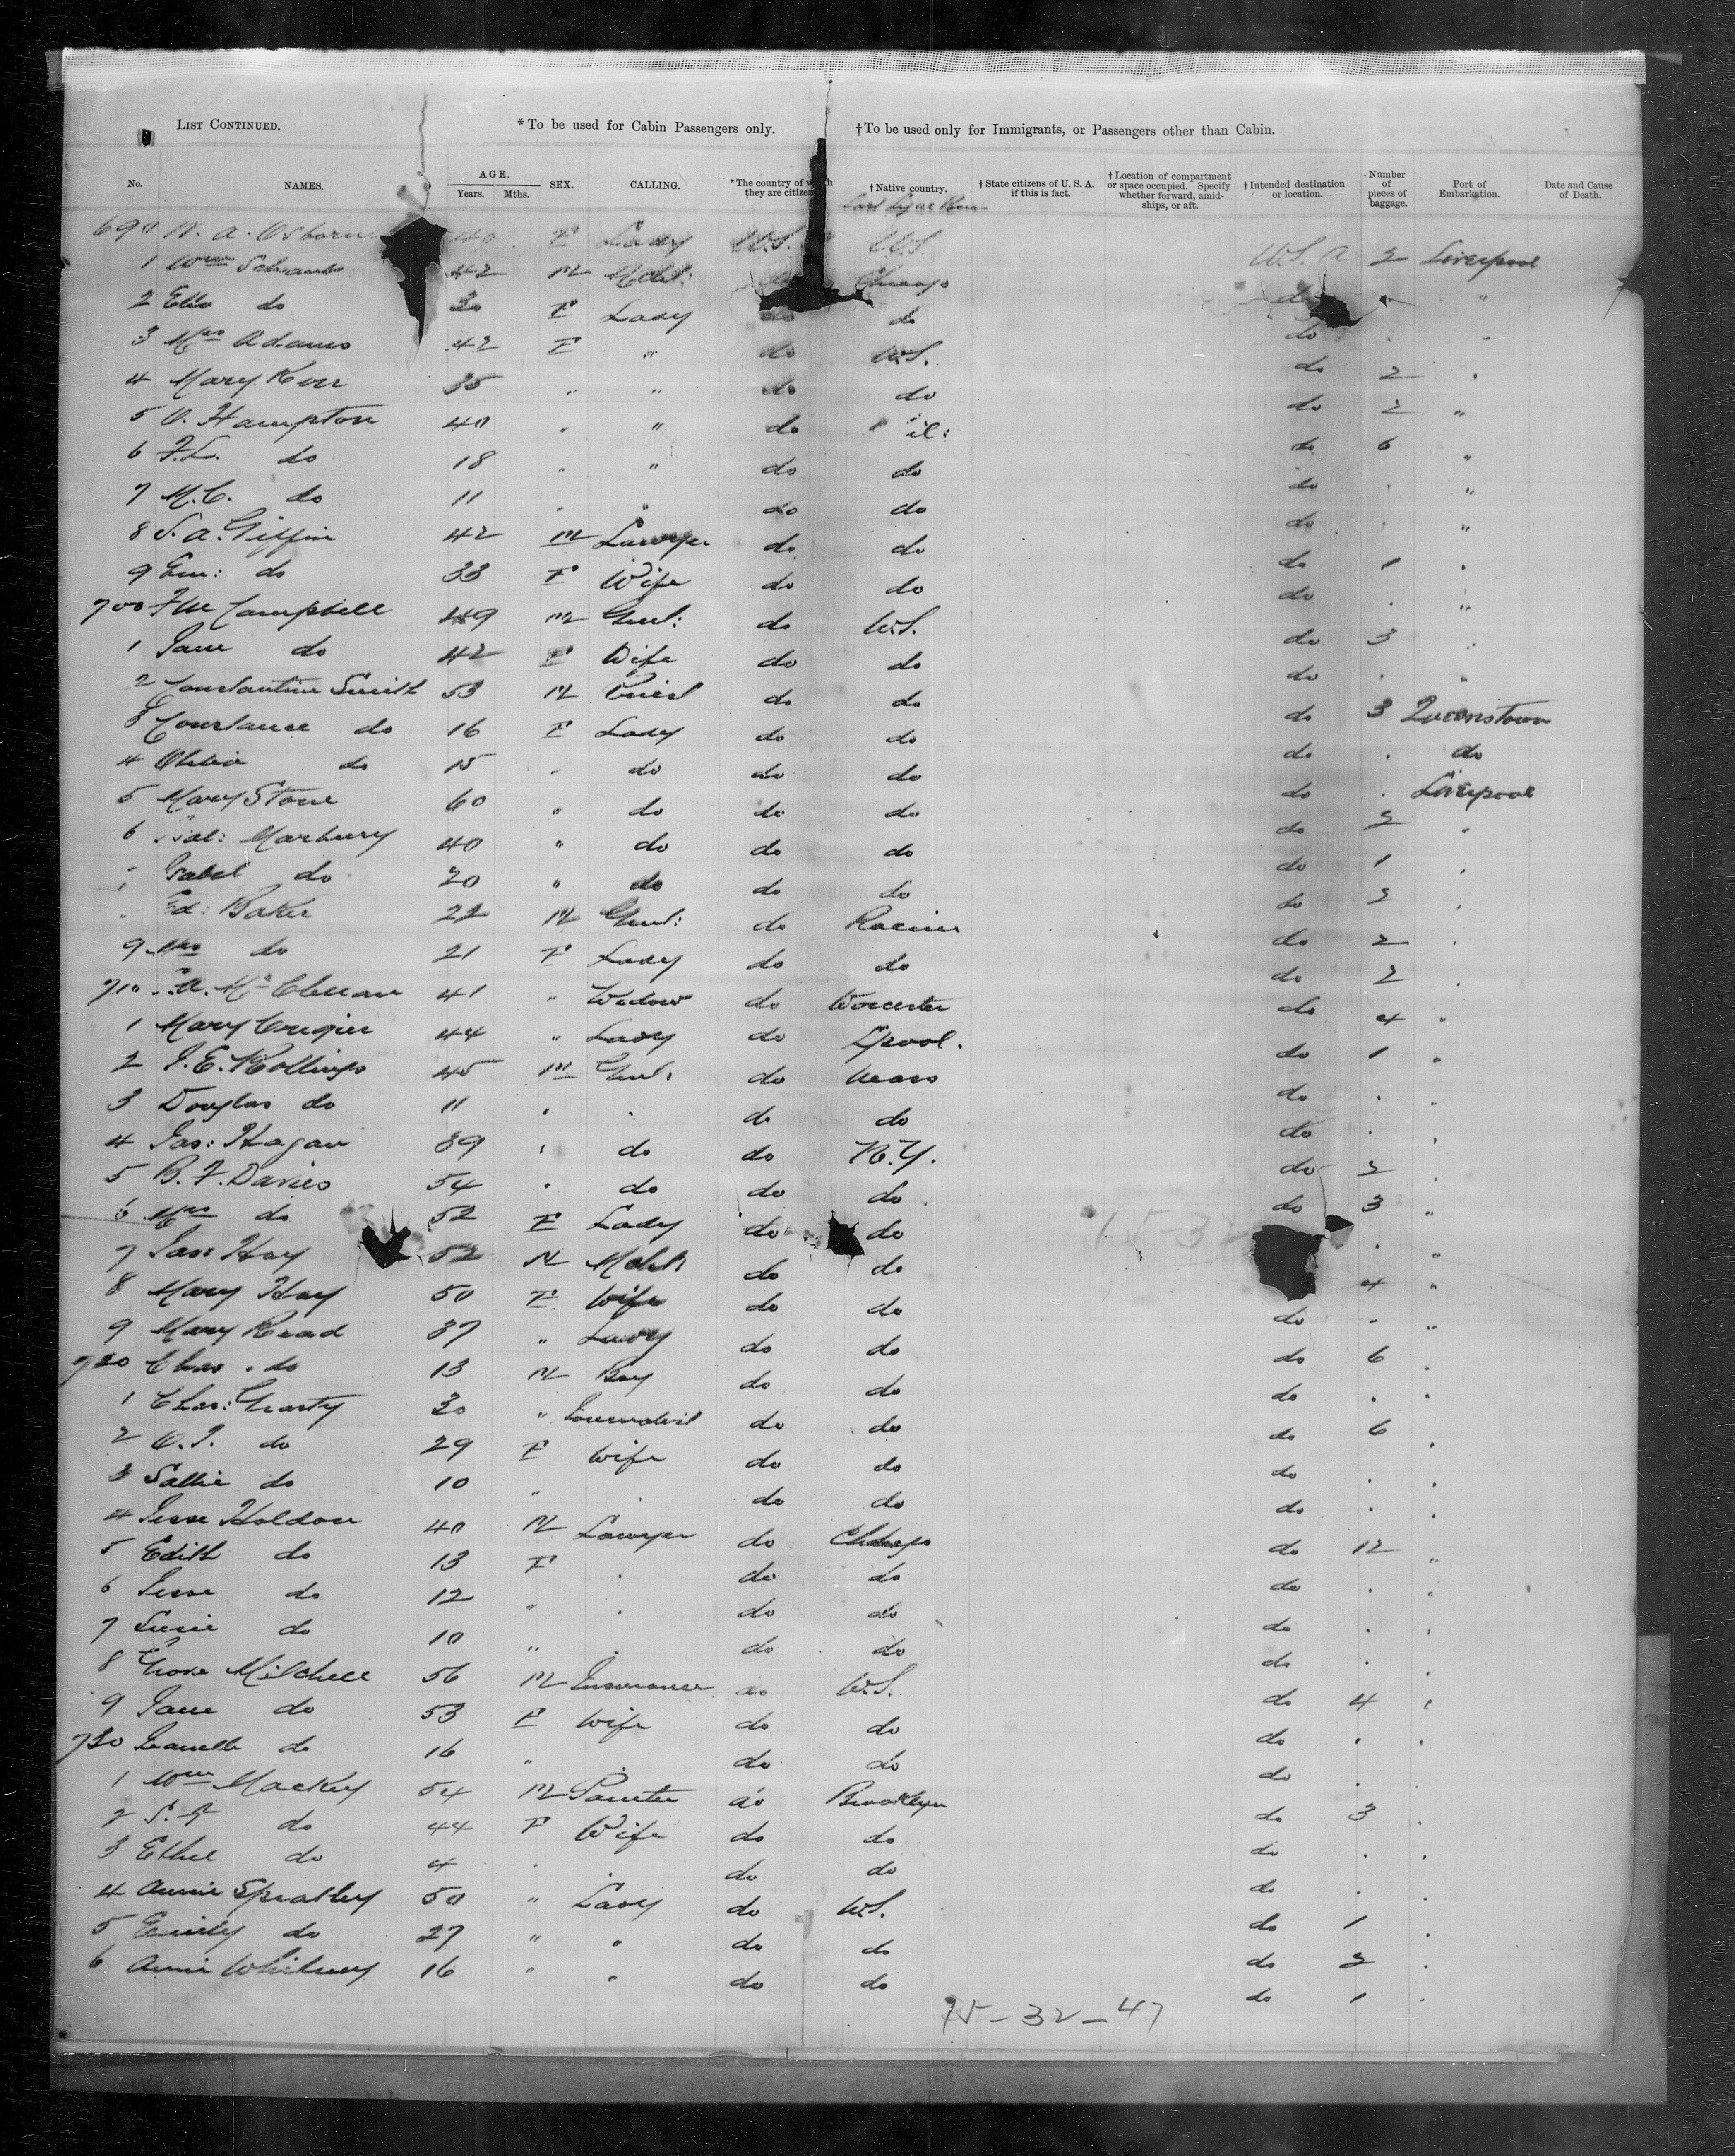 LIST CONTINUED. *To be used for Cabin Passengers only. †To be used only for Immigrants, or Passengers other than Cabin.
No. NAMES. AGE. Years. Mths. SEX. CALLING. *The country of which they are citizens †Native country. †State citizens of U. S. A. if this is fact. †Location of compartment or space occupied. Specify whether forward, amidships, or aft. †Intended destination or location. Number of pieces of baggage. Port of Embarkation. Date and Cause of Death.
690 A. Osborn 40 F Lady U.S. U.S. U.S.A 2 Liverpool
1 Wm 42 M Chicago do "
2 Ella do 30 F Lady do do do
3 Mrs Adams 42 F " do U.S. do 2
4 Mary Kerr 35 " do do do 2 "
5 O. Hampton 40 " do il: do 6 "
6 F.L. do 18 " do do do "
7 M.C. do 11 do do do "
8 S. A. Giffin 42 M Lawyer do do do 1
9 Em: do 33 F Wife do do do "
700 Campbell 49 M Genl: do U.S. do 3
1 Jane do 42 F Wife do do do
2 Constantine Smith 53 M Priest do do do 3 Queenstown
3 Constance do 16 F Lady do do do do
4 Olivia do 15 do do do do Liverpool
5 Mary Stone 60 " do do do do 2
6 Marbury 40 " do do do do 1
Isabel do 20 " do do do do 2
Ed: Baker 22 M Genl: do Racine do 2
9 Mrs do 21 F Lady do do do 2
710 A. McClellan 41 " Widow do Worcester do 4
1 Mary 44 " Lady do Lpool. do 1
2 J. E. Rollings 45 M Genl. do Mass do
3 Douglas do 11 do do do
4 Jas: Hagan 39 do do N.Y. do 2
5 B. F. Davies 54 do do do do 3 "
6 Mrs do 52 F Lady do do "
7 Jas: Hay 52 M do do 4 "
8 Mary Hay 50 F Wife do do do "
9 Mary Read 37 " Lady do do do 6
720 Chas. do 13 M Boy do do do
1 Chas: 30 " Journalist do do do 6
2 do 29 F Wife do do do
3 Sallie do 10 do do do
4 Jesse Holdom 40 M Lawyer do Chicago do 12 "
5 Edith do 13 F do do do
6 Jesse do 12 " do do do
7 Susie do 10 " do do do
8 Mitchell 56 M Insurance do U.S. do 4
9 Jane do 53 F Wife do do do
730 do 16 " do do do
1 Wm Mackey 54 M Painter do Brooklyn do 3
2 S. do 44 F Wife do do do
3 Ethel do 4 do do do
4 Annie Spratley 50 " Lady do U.S. do 1
5 Emily do 27 " " do do do 2
6 Annie Whitney 16 " " do do do 1
15-32
75-32-47